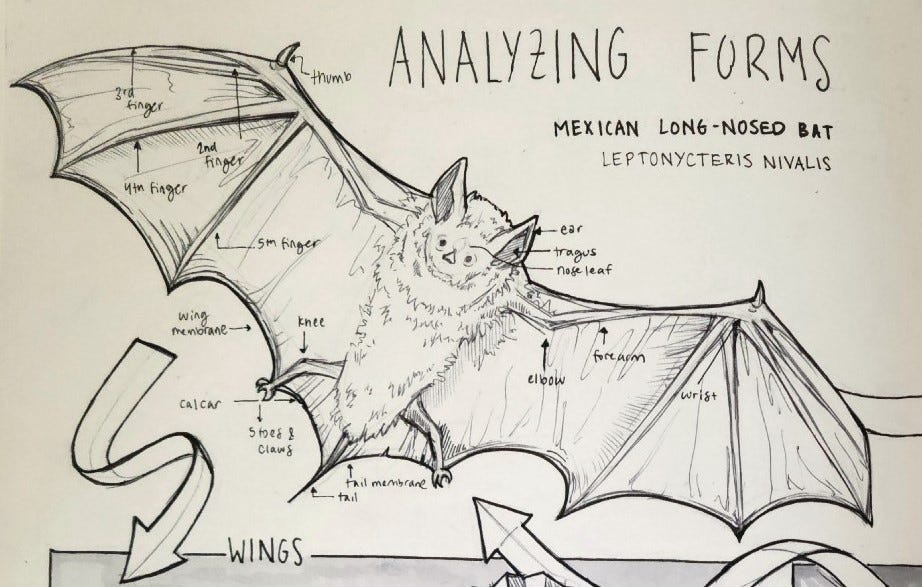 ANALYZING FORMS
MEXICAN LONG-NOSED BAT
LEPTONYCTERIS NIVALIS
thumb
3rd
finger
2nd
finger
4th finger
5th finger
ear
tragus
nose leaf
wing
membrane
knee
elbow
forearm
wrist
calcar
5 toes &
claws
tail membrane
tail
WINGS